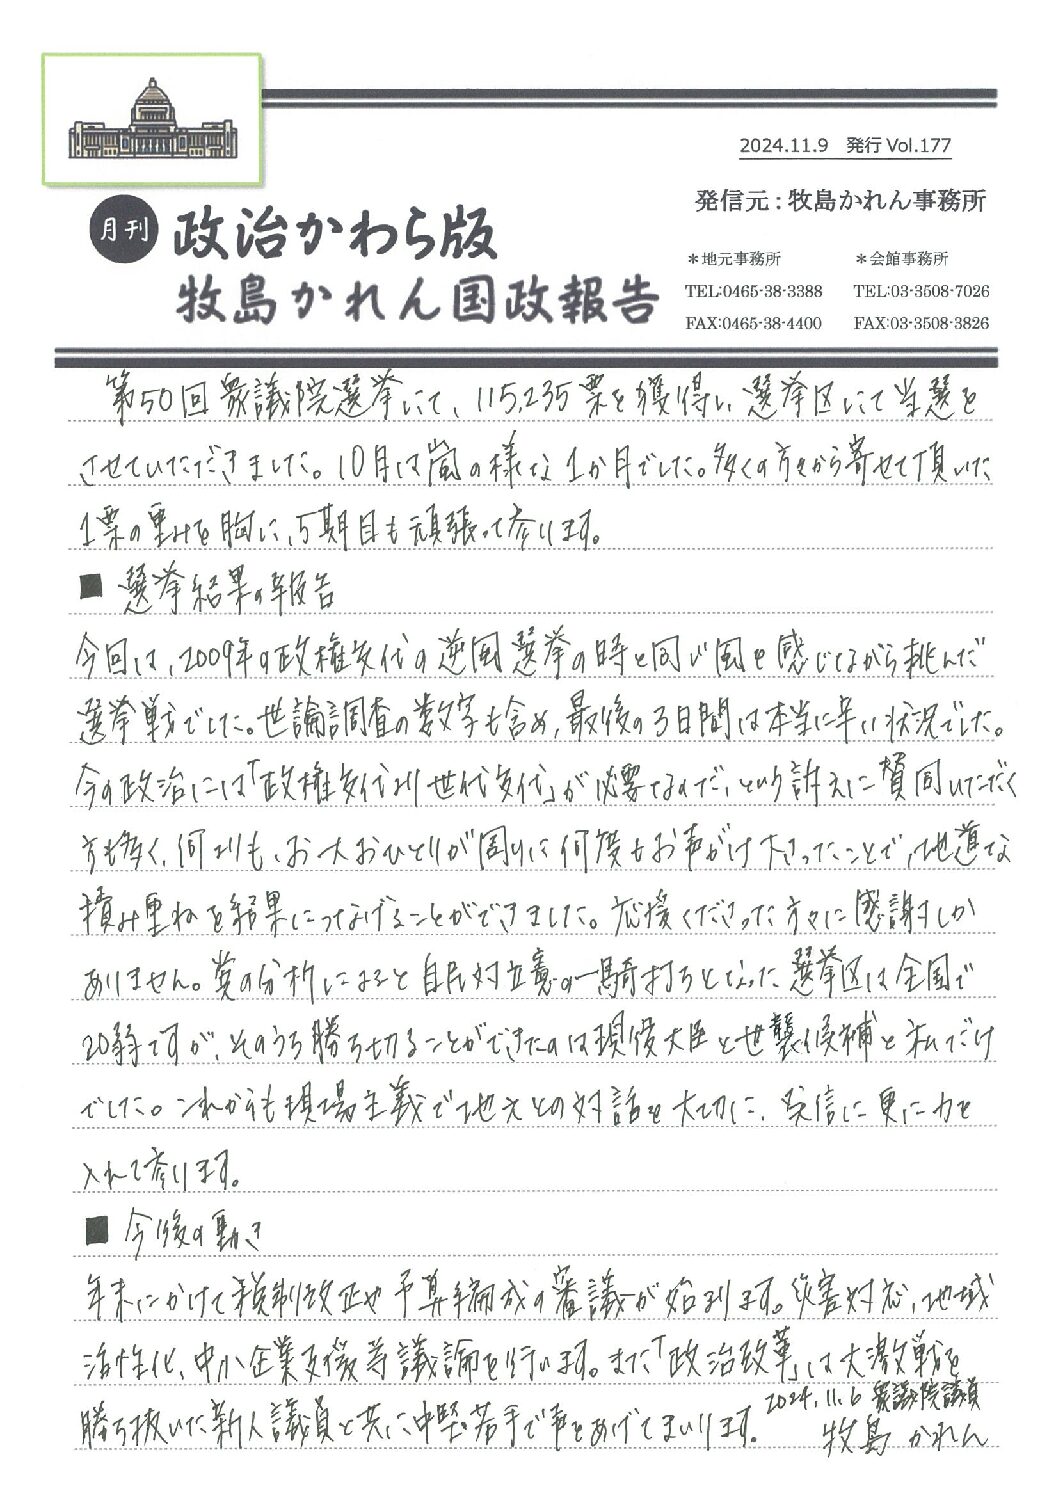 2024.11.9 発行 Vol.177
発信元:牧島かれん事務所
月刊 政治かわら版
牧島かれん国政報告
＊地元事務所 ＊会館事務所
TEL:0465-38-3388 TEL:03-3508-7026
FAX:0465-38-4400 FAX:03-3508-3826
第50回衆議院選挙にて、115,235票を獲得し選挙区にて当選を
させていただきました。10月は嵐の様な1か月でした。多くの方々から寄せて頂いた
1票の重みを胸に、5期目も頑張って参ります。
■ 選挙結果の報告
今回は、2009年の政権交代の逆風選挙の時と同じ風を感じながら挑んだ
選挙戦でした。世論調査の数字も含め、最後の3日間は本当に辛い状況でした。
今の政治には「政権交代より世代交代」が必要なのだ、という訴えに賛同いただく
方も多く、何よりも、お一人おひとりが周りに何度もお声がけ下さったことで、地道な
積み重ねを結果につなげることができました。応援くださった方々に感謝しか
ありません。党の分析によると自民対立憲の一騎打ちとなった選挙区は全国で
20弱ですが、そのうち勝ち切ることができたのは現役大臣と世襲候補と私だけ
でした。これからも現場主義で地元との対話を大切に、発信に更に力を
入れて参ります。
■ 今後の動き
年末にかけて税制改正や予算編成の審議が始まります。災害対応、地域
活性化、中小企業支援等議論を行います。また「政治改革」は大激戦を
勝ち抜いた新人議員と共に中堅・若手で声をあげてまいります。
2024.11.6 衆議院議員
牧島かれん